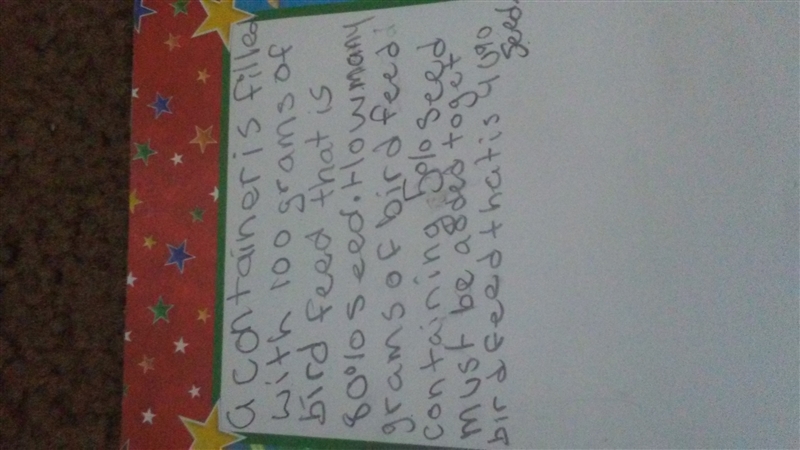 a container is filled
with 100 grams of
bird feed that is
80% seed. How many
grams of bird feed
containing 5% seed
must be added to get
bird feed that is 40%
seed.